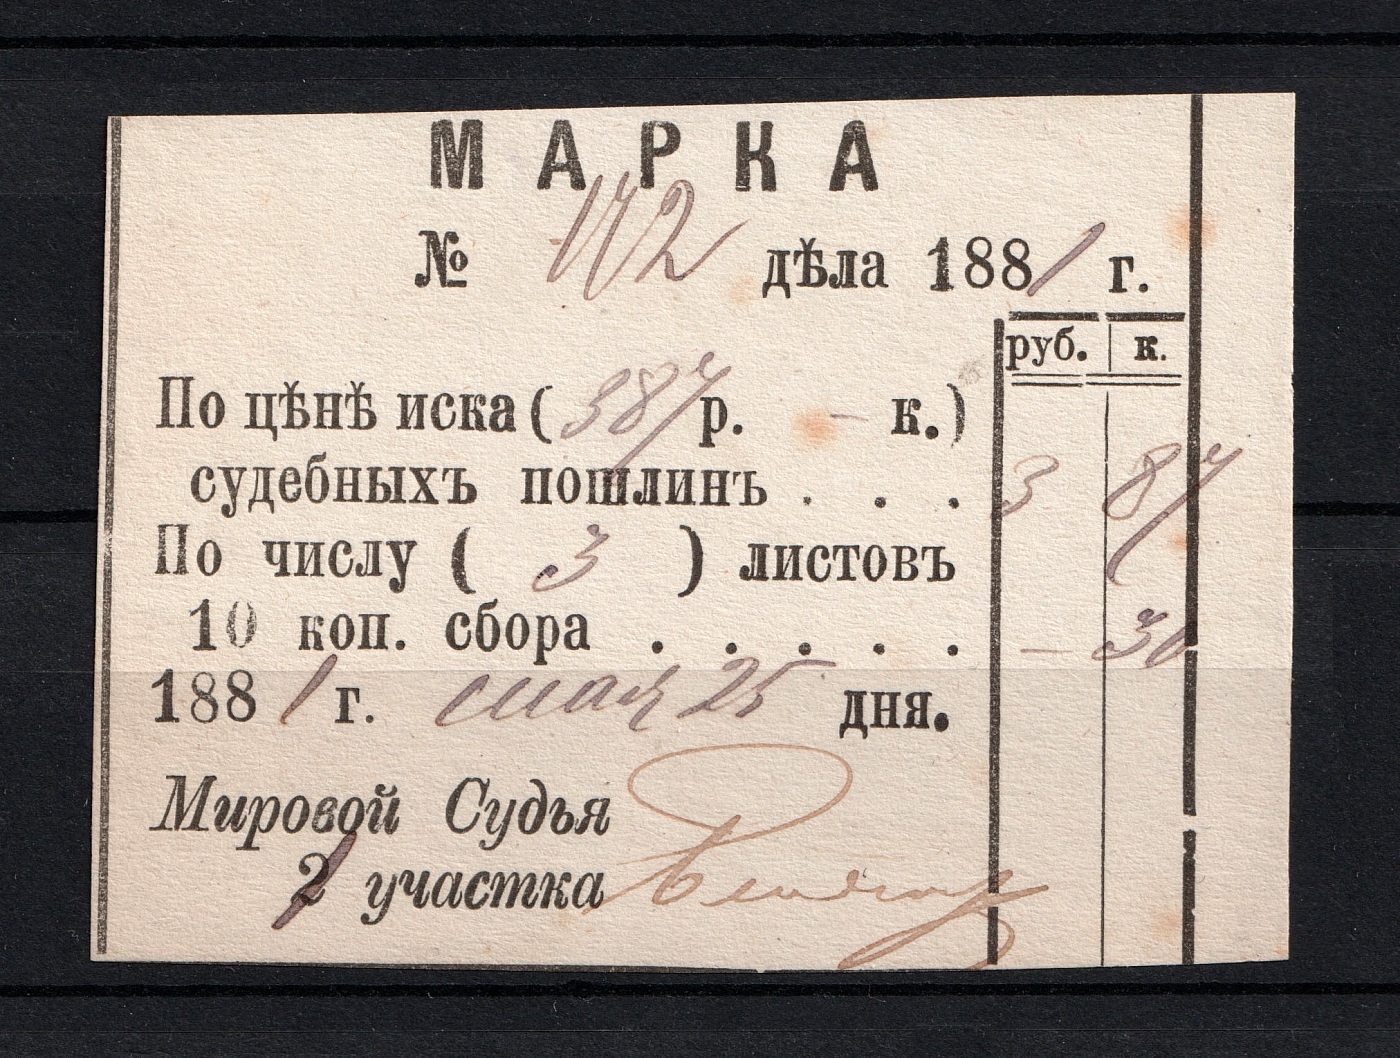 МАРКА
№ 172 дѣла 1881 г.
руб. к.
По цѣнѣ иска ( 387 р. – к.)
судебныхъ пошлинъ . . . 3 87
По числу ( 3 ) листовъ
10 коп. сбора . . . . . – 30
1881 г. мая 25 дня.
Мировой Судья
1 участка